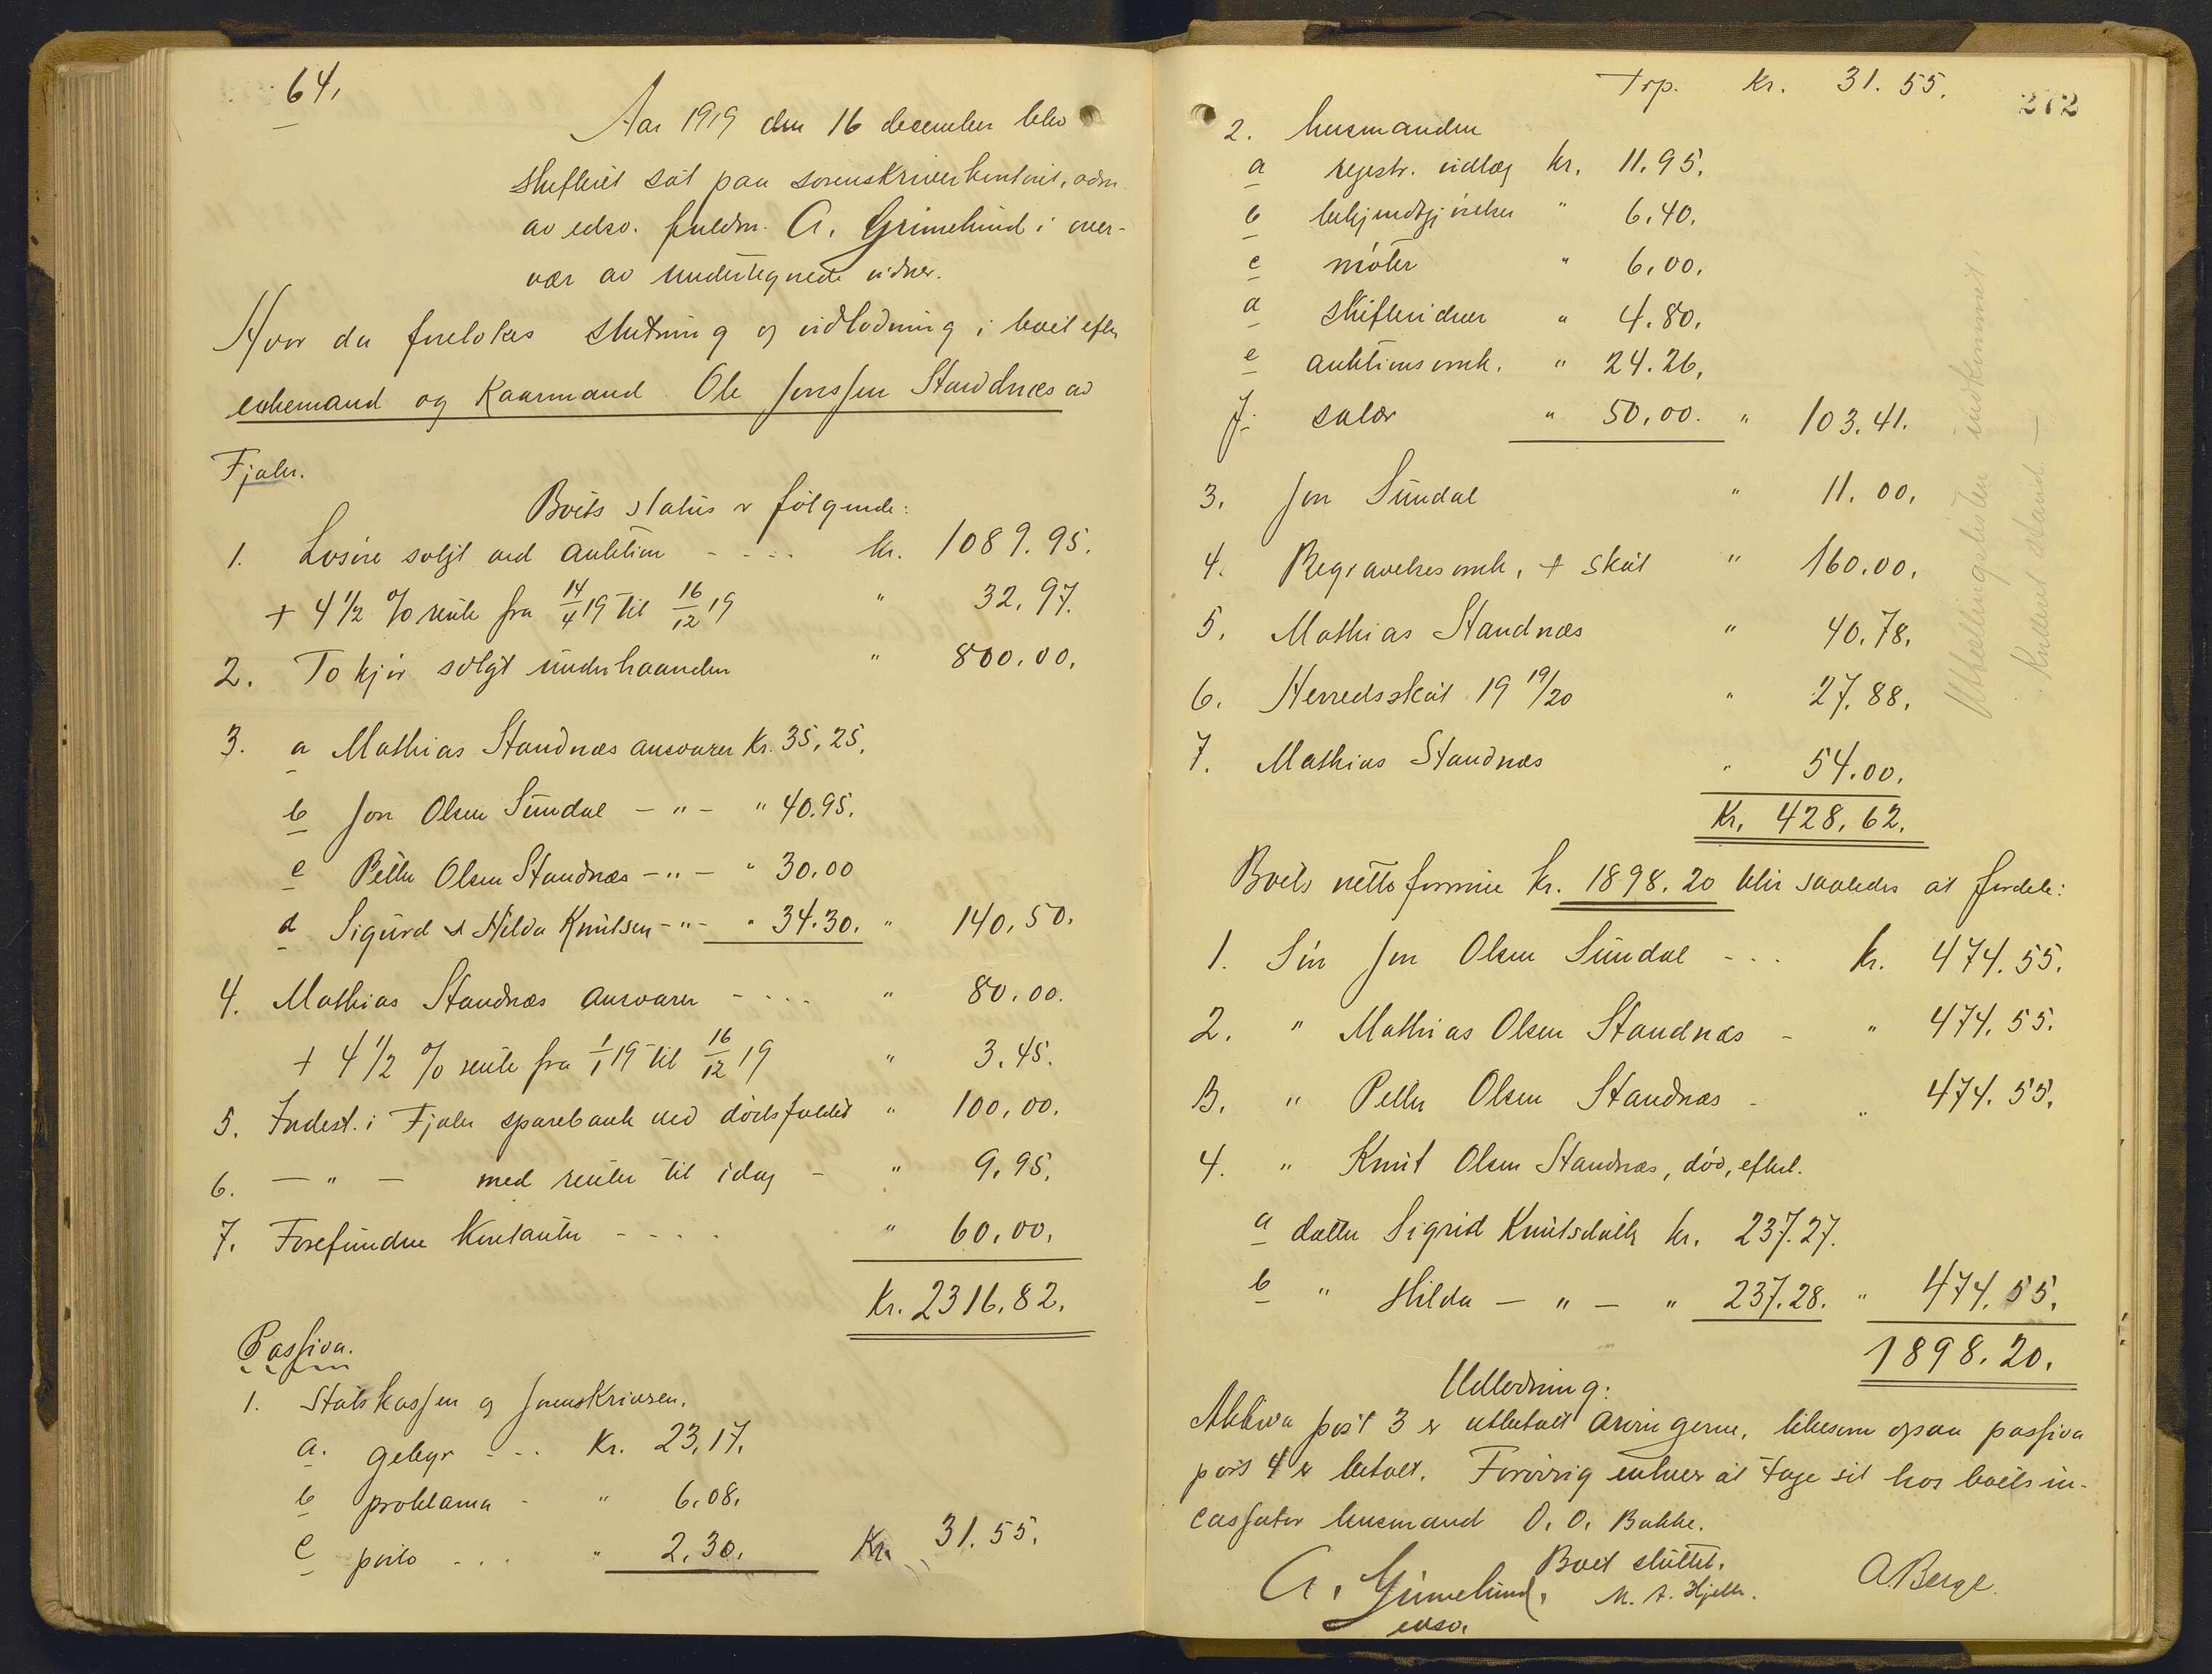 64.
Aar 1919 den 16 december blev
skifteret sat paa sorenskriverkontoret, adm.
av edsv. fuldm. A. Grimelund i over-
vær av undertegnede vidner.
Hvor da foretokes slutning og utlodning i boet efter
enkemand og Kaarmand Ole Jonssen Standnæs av
Fjaler.
Boets status er følgende:
1. Losøre solgt ved auktion - - - - kr. 1089.95.
+ 4 1/2 % rente fra 14/4 19 til 16/12 19 " 32.97.
2. To kjør solgt underhaanden " 800.00.
3. a Mathias Standnæs ansvarer Kr. 35.25.
b Jon Olsen Sundal - " - " 40.95.
c Petter Olsen Standnæs - " - " 30.00
d Sigurd & Hilda Knutsen - " - " 34.30. " 140.50.
4. Mathias Standnæs ansvarer - - - - " 80.00.
+ 4 1/2 % rente fra 1/1 19 til 16/12 19 " 3.45.
5. Indest. i Fjaler sparebank ved dødsfaldet " 100.00.
6. - " - med renter til idag - " 9.95.
7. Forefundne kontanter - - - - " 60.00.
Kr. 2316.82.
Passiva.
1. Statskassen og sorenskriveren.
a. gebyr - - - Kr. 23.17.
b proklama - " 6.08.
c porto - - - " 2.30. Kr. 31.55.
Trp. Kr. 31.55.
272
2. lensmanden
a registr. vidtløg kr. 11.95.
b bekjendtgjørelser " 6.40.
c møter " 6.00.
d skiftevidner " 4.80.
e auktionsomk. " 24.26.
f. salær " 50.00. " 103.41.
3. Jon Sundal " 11.00.
4. Begravelsesomk. + skat " 160.00.
5. Mathias Standnæs " 40.78.
6. Herredsskat 19 19/20 " 27.88.
7. Mathias Standnæs " 54.00.
Kr. 428.62.
Boets netto formue kr. 1898.20 blir saaledes at fordele:
1. Søn Jon Olsen Sundal - - - kr. 474.55.
2. " Mathias Olsen Standnæs - " 474.55.
3. " Petter Olsen Standnæs - " 474.55.
4. " Knut Olsen Standnæs, død, efterl.
a datter Sigrid Knutsdatter kr. 237.27.
b " Hilda - " - " 237.28. " 474.55.
1898.20.
Utlodning:
Aktiva post 3 er utbetalt arvingerne, likesom ogsaa passiva
post 4 er betalt. Forøvrig enhver at tage sit hos boets in-
cassator lensmand O. O. Bakke.
Boet sluttet.
A. Grimelund, M. A. Hjelle. A. Berge.
edsv.
Utbetalingslisten indkommet.